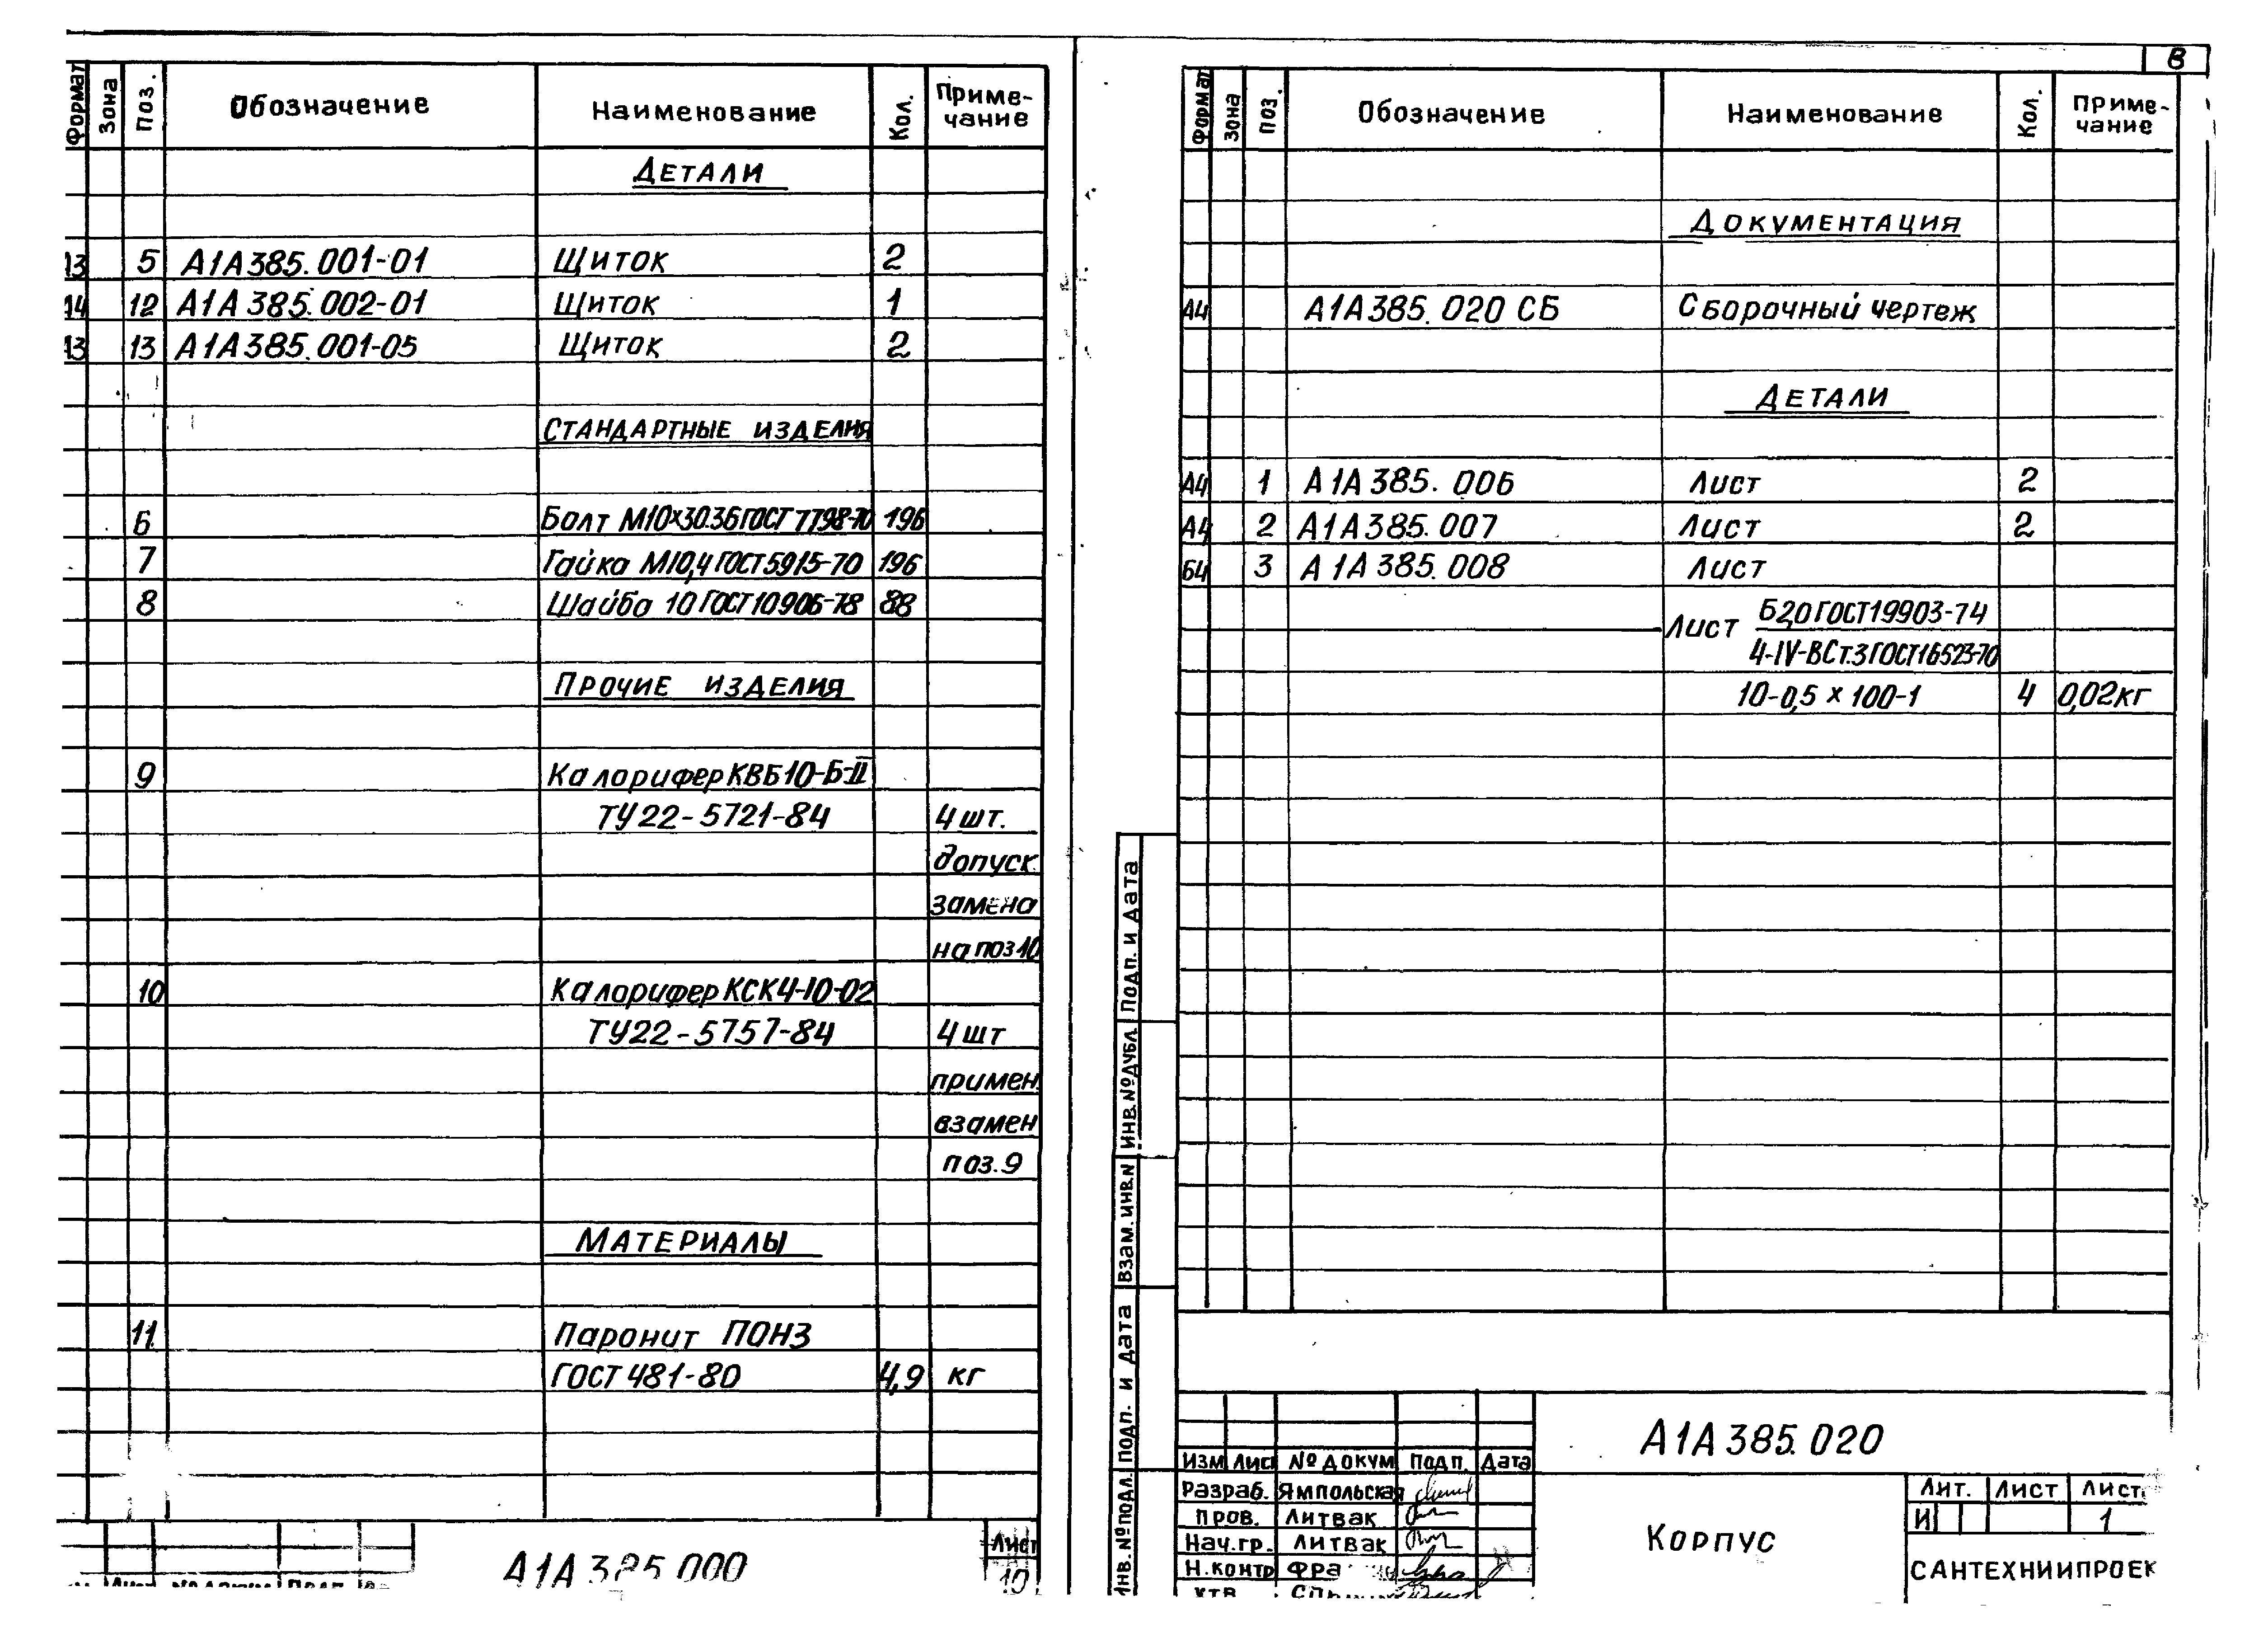 Формат Зона Поз. Обозначение Наименование Кол. Приме-чание
Детали
13 5 А1А385.001-01 Щиток 2
14 12 А1А385.002-01 Щиток 1
13 13 А1А385.001-05 Щиток 2
Стандартные изделия
6 Болт М10х30.36 ГОСТ 7798-70 196
7 Гайка М10,4 ГОСТ 5915-70 196
8 Шайба 10 ГОСТ 10906-78 88
Прочие изделия
9 Калорифер КВБ10-Б-II
ТУ22-5721-84 4 шт.
допуск.
замена
на поз 10
10 Калорифер КСК4-10-02
ТУ22-5757-84 4 шт
примен.
взамен
поз. 9
Материалы
11 Паронит ПОН3
ГОСТ 481-80 4,9 кг
А1А385.000
Лист
10
В
Формат Зона Поз. Обозначение Наименование Кол. Приме-чание
Документация
А4 А1А385.020 СБ Сборочный чертеж
Детали
А4 1 А1А385.006 Лист 2
А4 2 А1А385.007 Лист 2
Б4 3 А1А385.008 Лист
Лист Б2,0 ГОСТ 19903-74
4-IV-ВСт.3 ГОСТ 16523-70
10-0,5 х 100-1 4 0,02кг
Подп. и дата
Инв.№дубл.
Взам.инв.N
Подп. и дата
Инв.№подл.
А1А385.020
Изм Лист № докум Подп. Дата
Разраб. Ямпольская
Пров. Литвак
Нач.гр. Литвак
Н.контр Фра
Утв.
Корпус
Лит. Лист Лист
И 1
САНТЕХНИИПРОЕК